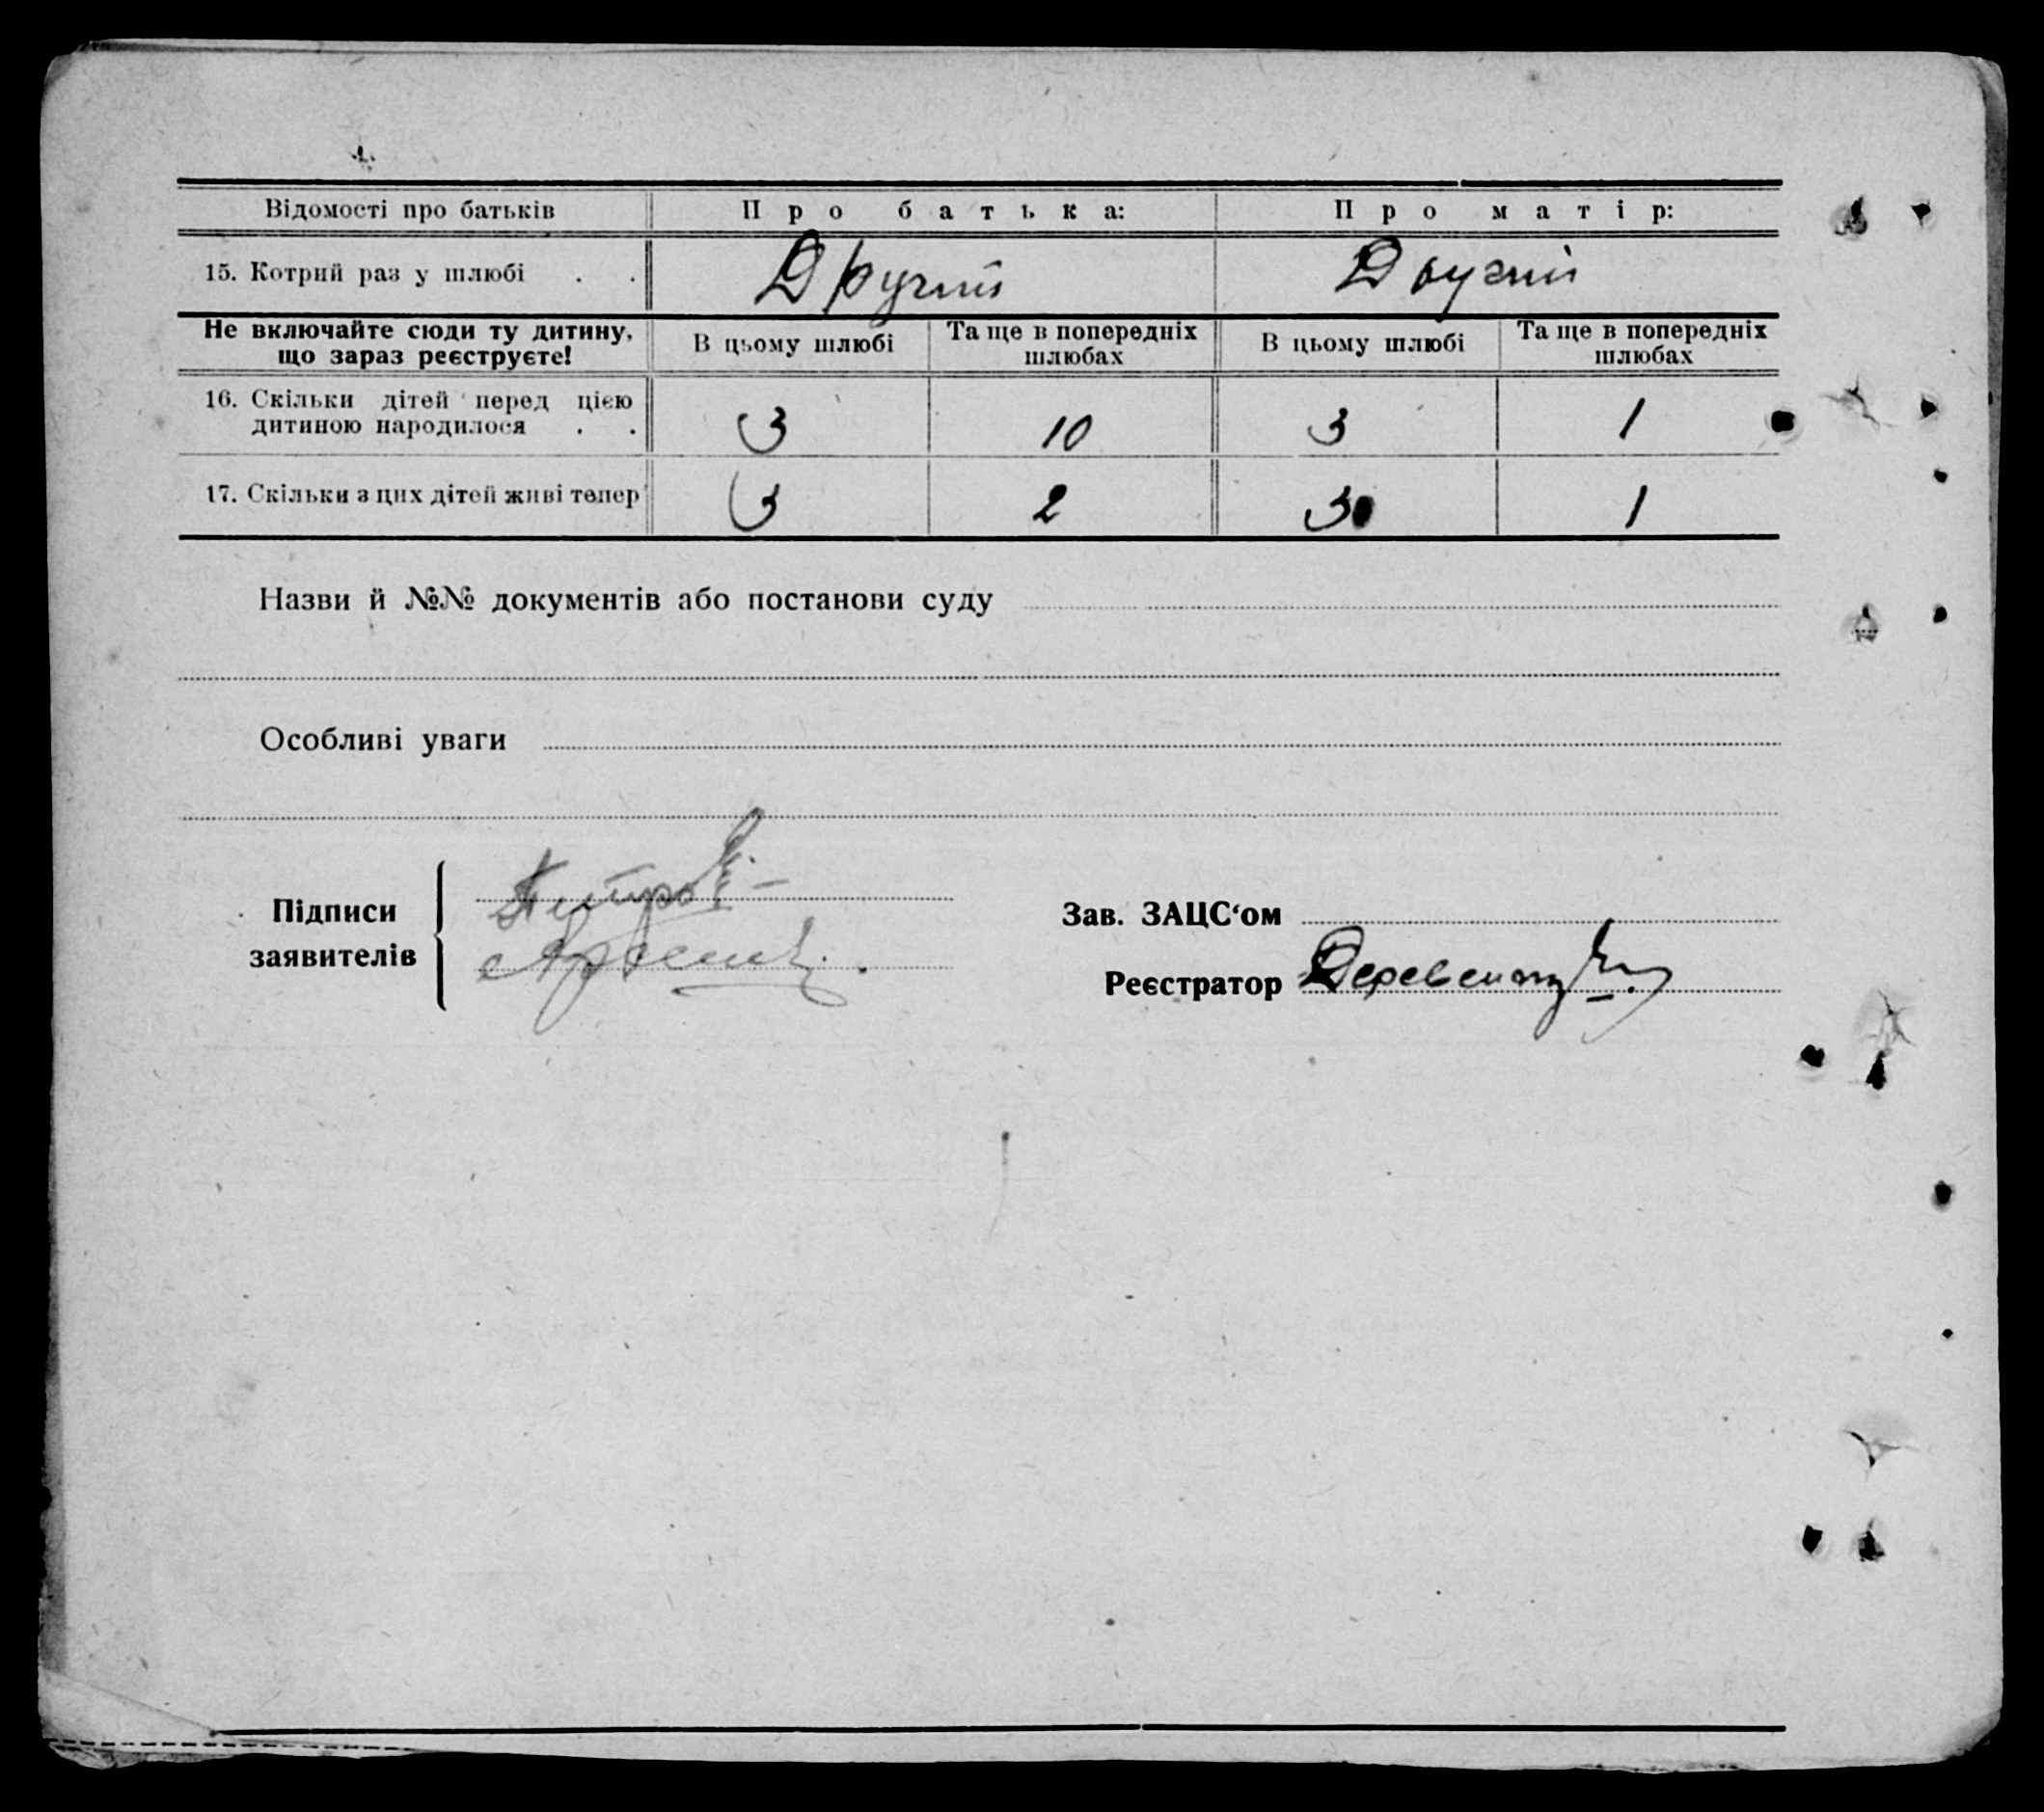 Відомості про батьків Про батька: Про матір:
15. Котрий раз у шлюбі . . Другий Другий
Не включайте сюди ту дитину, що зараз реєструєте! В цьому шлюбі Та ще в попередніх шлюбах В цьому шлюбі Та ще в попередніх шлюбах
16. Скільки дітей перед цією
дитиною народилося . . 3 10 3 1
17. Скільки з цих дітей живі тепер 3 2 3 1
Назви й №№ документів або постанови суду
Особливі уваги
Підписи
заявителів
Зав. ЗАЦС‘ом
Реєстратор